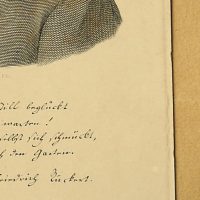 Still beglückt
warten!
selbst sich schmückt,
den Garten.
Friedrich Rückert.